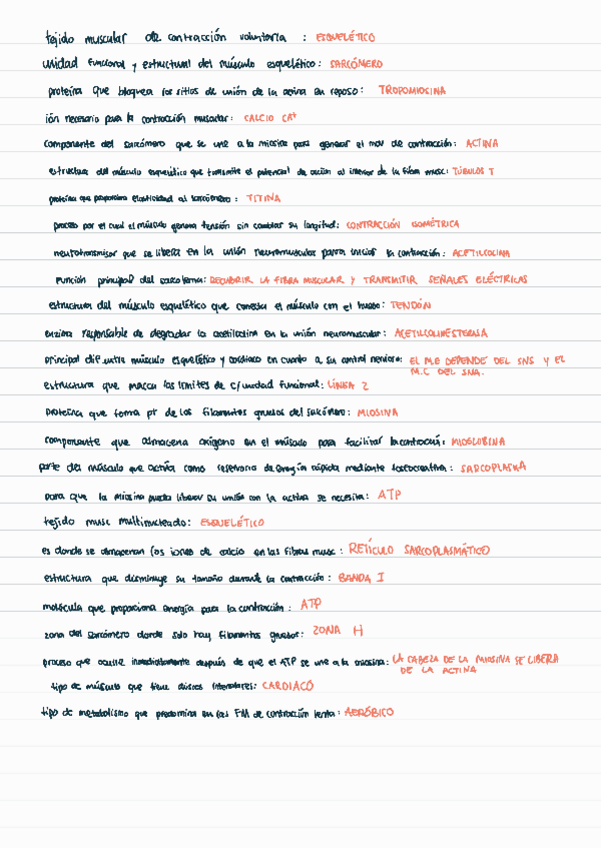 tejido muscular de contracción voluntaria : ESQUELÉTICO
unidad funcional y estructural del músculo esquelético: SARCÓMERO
proteína que bloquea los sitios de unión de la actina en reposo: TROPOMIOSINA
ión necesario para la contracción muscular: CALCIO Ca+
componente del sarcómero que se une a la miosina para generar el mov de contracción: ACTINA
estructura del músculo esquelético que transmite el potencial de acción al interior de la fibra musc: TÚBULOS T
proteína que proporciona elasticidad al sarcómero: TITINA
proceso por el cual el músculo genera tensión sin cambiar su longitud: CONTRACCIÓN ISOMÉTRICA
neurotransmisor que se libera en la unión neuromuscular para iniciar la contracción: ACETILCOLINA
función principal del sarcolema: RECUBRIR LA FIBRA MUSCULAR Y TRANSMITIR SEÑALES ELÉCTRICAS
estructura del músculo esquelético que conecta el músculo con el hueso: TENDÓN
enzima responsable de degradar la acetilcolina en la unión neuromuscular: ACETILCOLINESTERASA
principal dif entre músculo esquelético y cardiaco en cuanto a su control nervioso: EL M.E DEPENDE DEL SNS Y EL
M.C DEL SNA.
estructura que marca los límites de c/unidad funcional: LÍNEA Z
proteína que forma pt de los filamentos gruesos del sarcómero: MIOSINA
componente que almacena oxígeno en el músculo para facilitar la contracción: MIOGLOBINA
parte del músculo que actúa como reservorio de energía rápida mediante fosfocreatina: SARCOPLASMA
para que la miosina pueda liberar su unión con la actina se necesita: ATP
tejido musc multinucleado: ESQUELÉTICO
es donde se almacenan los iones de calcio en las fibras musc: RETÍCULO SARCOPLASMÁTICO
estructura que disminuye su tamaño durante la contracción: BANDA I
molécula que proporciona energía para la contracción: ATP
zona del sarcómero donde solo hay filamentos gruesos: ZONA H
proceso que ocurre inmediatamente después de que el ATP se une a la miosina: LA CABEZA DE LA MIOSINA SE LIBERA
DE LA ACTINA
tipo de músculo que tiene discos intercalares: CARDIACO
tipo de metabolismo que predomina en las FM de contracción lenta: AERÓBICO